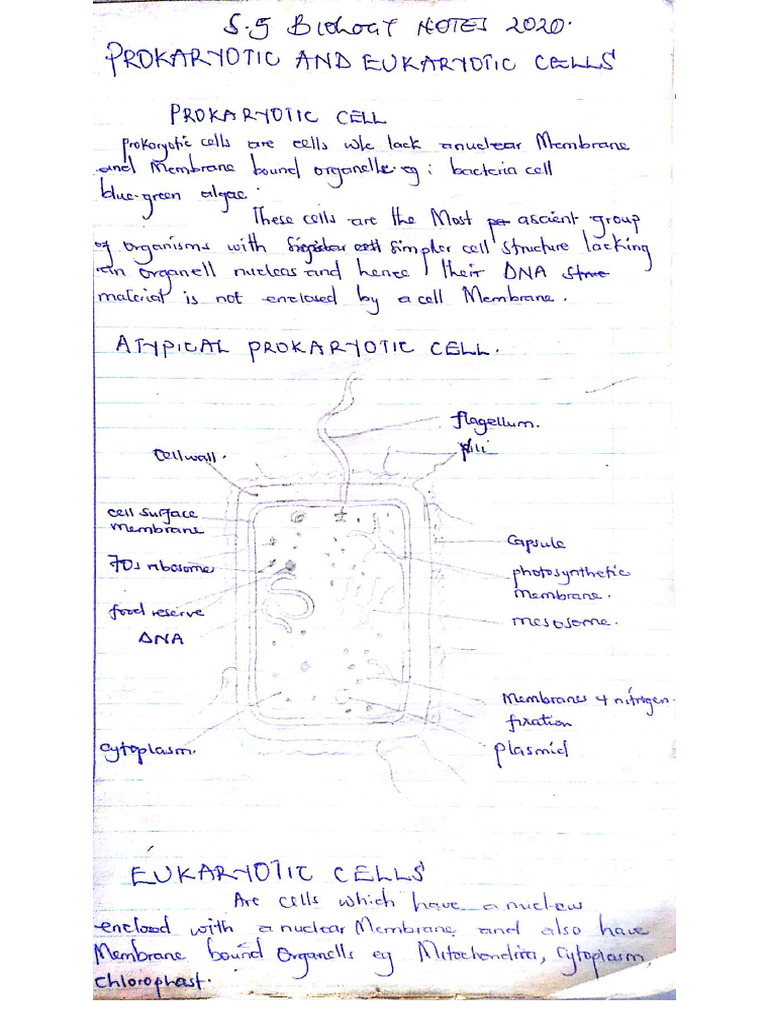 S.5 BIOLOGY NOTES 2020.
PROKARYOTIC AND EUKARYOTIC CELLS
PROKARYOTIC CELL
prokaryotic cells are cells wc lack a nuclear Membrane
and Membrane bound organelle. eg: bacteria cell
blue-green algae.
These cells are the Most ascient group
of organisms with simpler cell structure lacking
an organell nucleas and hence their DNA
material is not enclosed by a cell Membrane.
A TYPICAL PROKARYOTIC CELL.
flagellum.
pili
Cell wall.
cell surface
membrane
Capsule
70s ribosome
photosynthetic
Membrane.
food reserve
mesosome.
DNA
Membranes 4 nitrogen.
fixation
cytoplasm.
plasmid
EUKARYOTIC CELLS
Are cells which have a nuclew
enclosed with a nuclear Membrane, and also have
Membrane bound Organells eg Mitochondira, Cytoplasm,
Chloroplast.